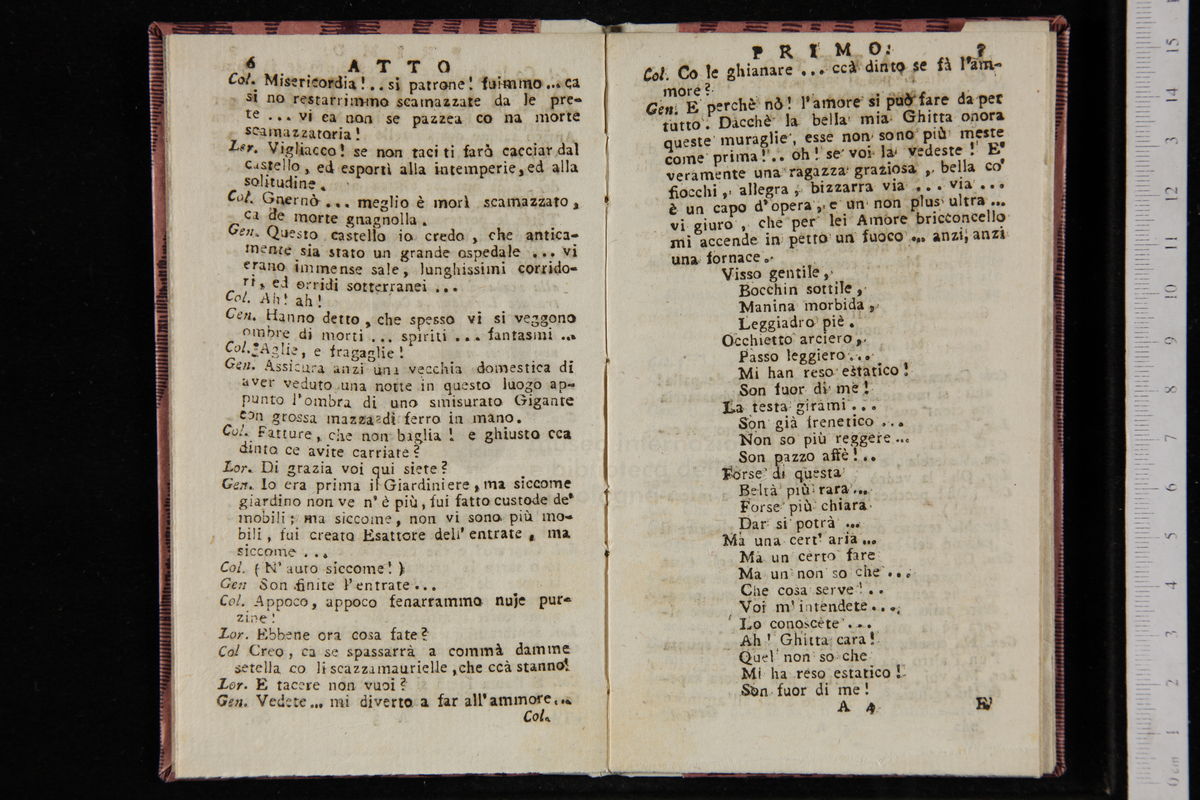 6 A T T O
Col. Misericordia!..si patrone! fuimmo...ca
si no restarrimmo scamazzate da le pre-
te ... vi ca non se pazzea co na morte
scamazzatoria!
Lor. Vigliacco! se non taci ti farò cacciar dal
castello, ed esporti alla intemperie, ed alla
solitudine.
Col. Gnernò ... meglio è morì scamazzato,
ca de morte gnagnolla.
Gen. Questo castello io credo, che antica-
mente sia stato un grande ospedale ... vi
erano immense sale, lunghissimi corrido-
ri, ed orridi sotterranei ...
Col. Ah! ah!
Gen. Hanno detto, che spesso vi si veggono
ombre di morti ... spiriti ... fantasmi ...
Col. Aglie, e fragaglie!
Gen. Assicura anzi una vecchia domestica di
aver veduto una notte in questo luogo ap-
punto l'ombra di uno smisurato Gigante
con grossa mazza di ferro in mano.
Col. Fatture, che non baglia! e ghiusto cca
dinto ce avite carriate?
Lor. Di grazia voi qui siete?
Gen. Io era prima il Giardiniere, ma siccome
giardino non ve n'è più, fui fatto custode de'
mobili; ma siccome, non vi sono più mo-
bili, fui creato Esattore dell'entrate, ma
siccome ...
Col. (N'auto siccome!)
Gen Son finite l'entrate...
Col. Appoco, appoco fenarrammo nuje pur-
zine!
Lor. Ebbene ora cosa fate?
Col Creo, ca se spassarrà a commà damme
setella co li scazzamaurielle, che ccà stanno!
Lor. E tacere non vuoi?
Gen. Vedete... mi diverto a far all'ammore...
Col.
P R I M O. 7
Col. Co le ghianare ... ccà dinto se fà l'am-
more?
Gen. E perchè nò! l'amore si può fare da per
tutto. Dacchè la bella mia Ghitta onora
queste muraglie, esse non sono più meste
come prima!.. oh! se voi la vedeste! E'
veramente una ragazza graziosa, bella co'
fiocchi, allegra, bizzarra via ... via ...
è un capo d'opera, e un non plus ultra ...
vi giuro, che per lei Amore bricconcello
mi accende in petto un fuoco ... anzi, anzi
una fornace.
Visso gentile,
Bocchin sottile,
Manina morbida,
Leggiadro piè.
Occhietto arciero,
Passo leggiero...
Mi han reso estatico!
Son fuor di me!
La testa girami...
Son già frenetico ...
Non so più reggere...
Son pazzo affè!..
Forse di questa
Beltà più rara...
Forse più chiara
Dar si potrà ...
Ma una cert'aria...
Ma un certo fare
Ma un non so che ...
Che cosa serve!..
Voi m'intendete...
Lo conoscete ...
Ah! Ghitta cara!
Quel non so che
Mi ha reso estatico!
Son fuor di me!
A 4 E'
0 cm 1 2 3 4 5 6 7 8 9 10 11 12 13 14 15